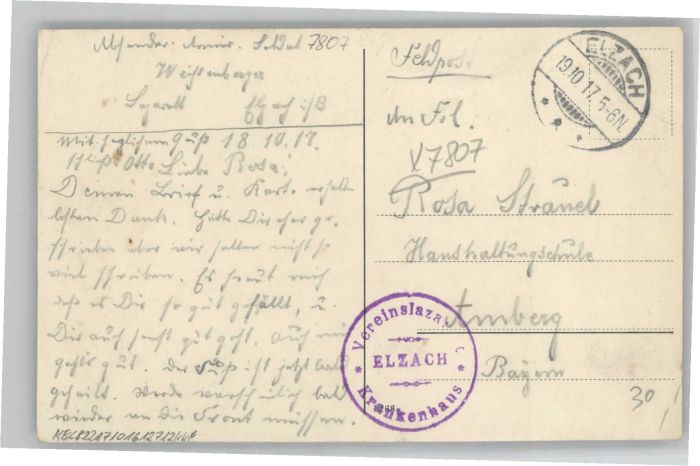 Absender: Armier. Soldat 7807
Weissenberger
Lazarett Elzach i/B
Mit herzlichem Gruß 18.10.17.
Otto Liebe Rosa!
Deinen Brief u. Karte erhalten
besten Dank. Hätte Dir eher ge-
schrieben aber wir sollen nicht so
viel schreiben. Es freut mich
daß es Dir so gut gefällt, u.
Dir auch sonst gut geht. Auch mir
geht's gut. Der Fuß ist jetzt bald
geheilt. Werde wahrscheinlich bald
wieder an die Front müssen.
Feldpost
An Frl.
X7807
Rosa
Haushaltungsschule
Amberg
Bayern
30
ELZACH
19.10.17. 5-6N.
Vereinslazarett
ELZACH
Krankenhaus